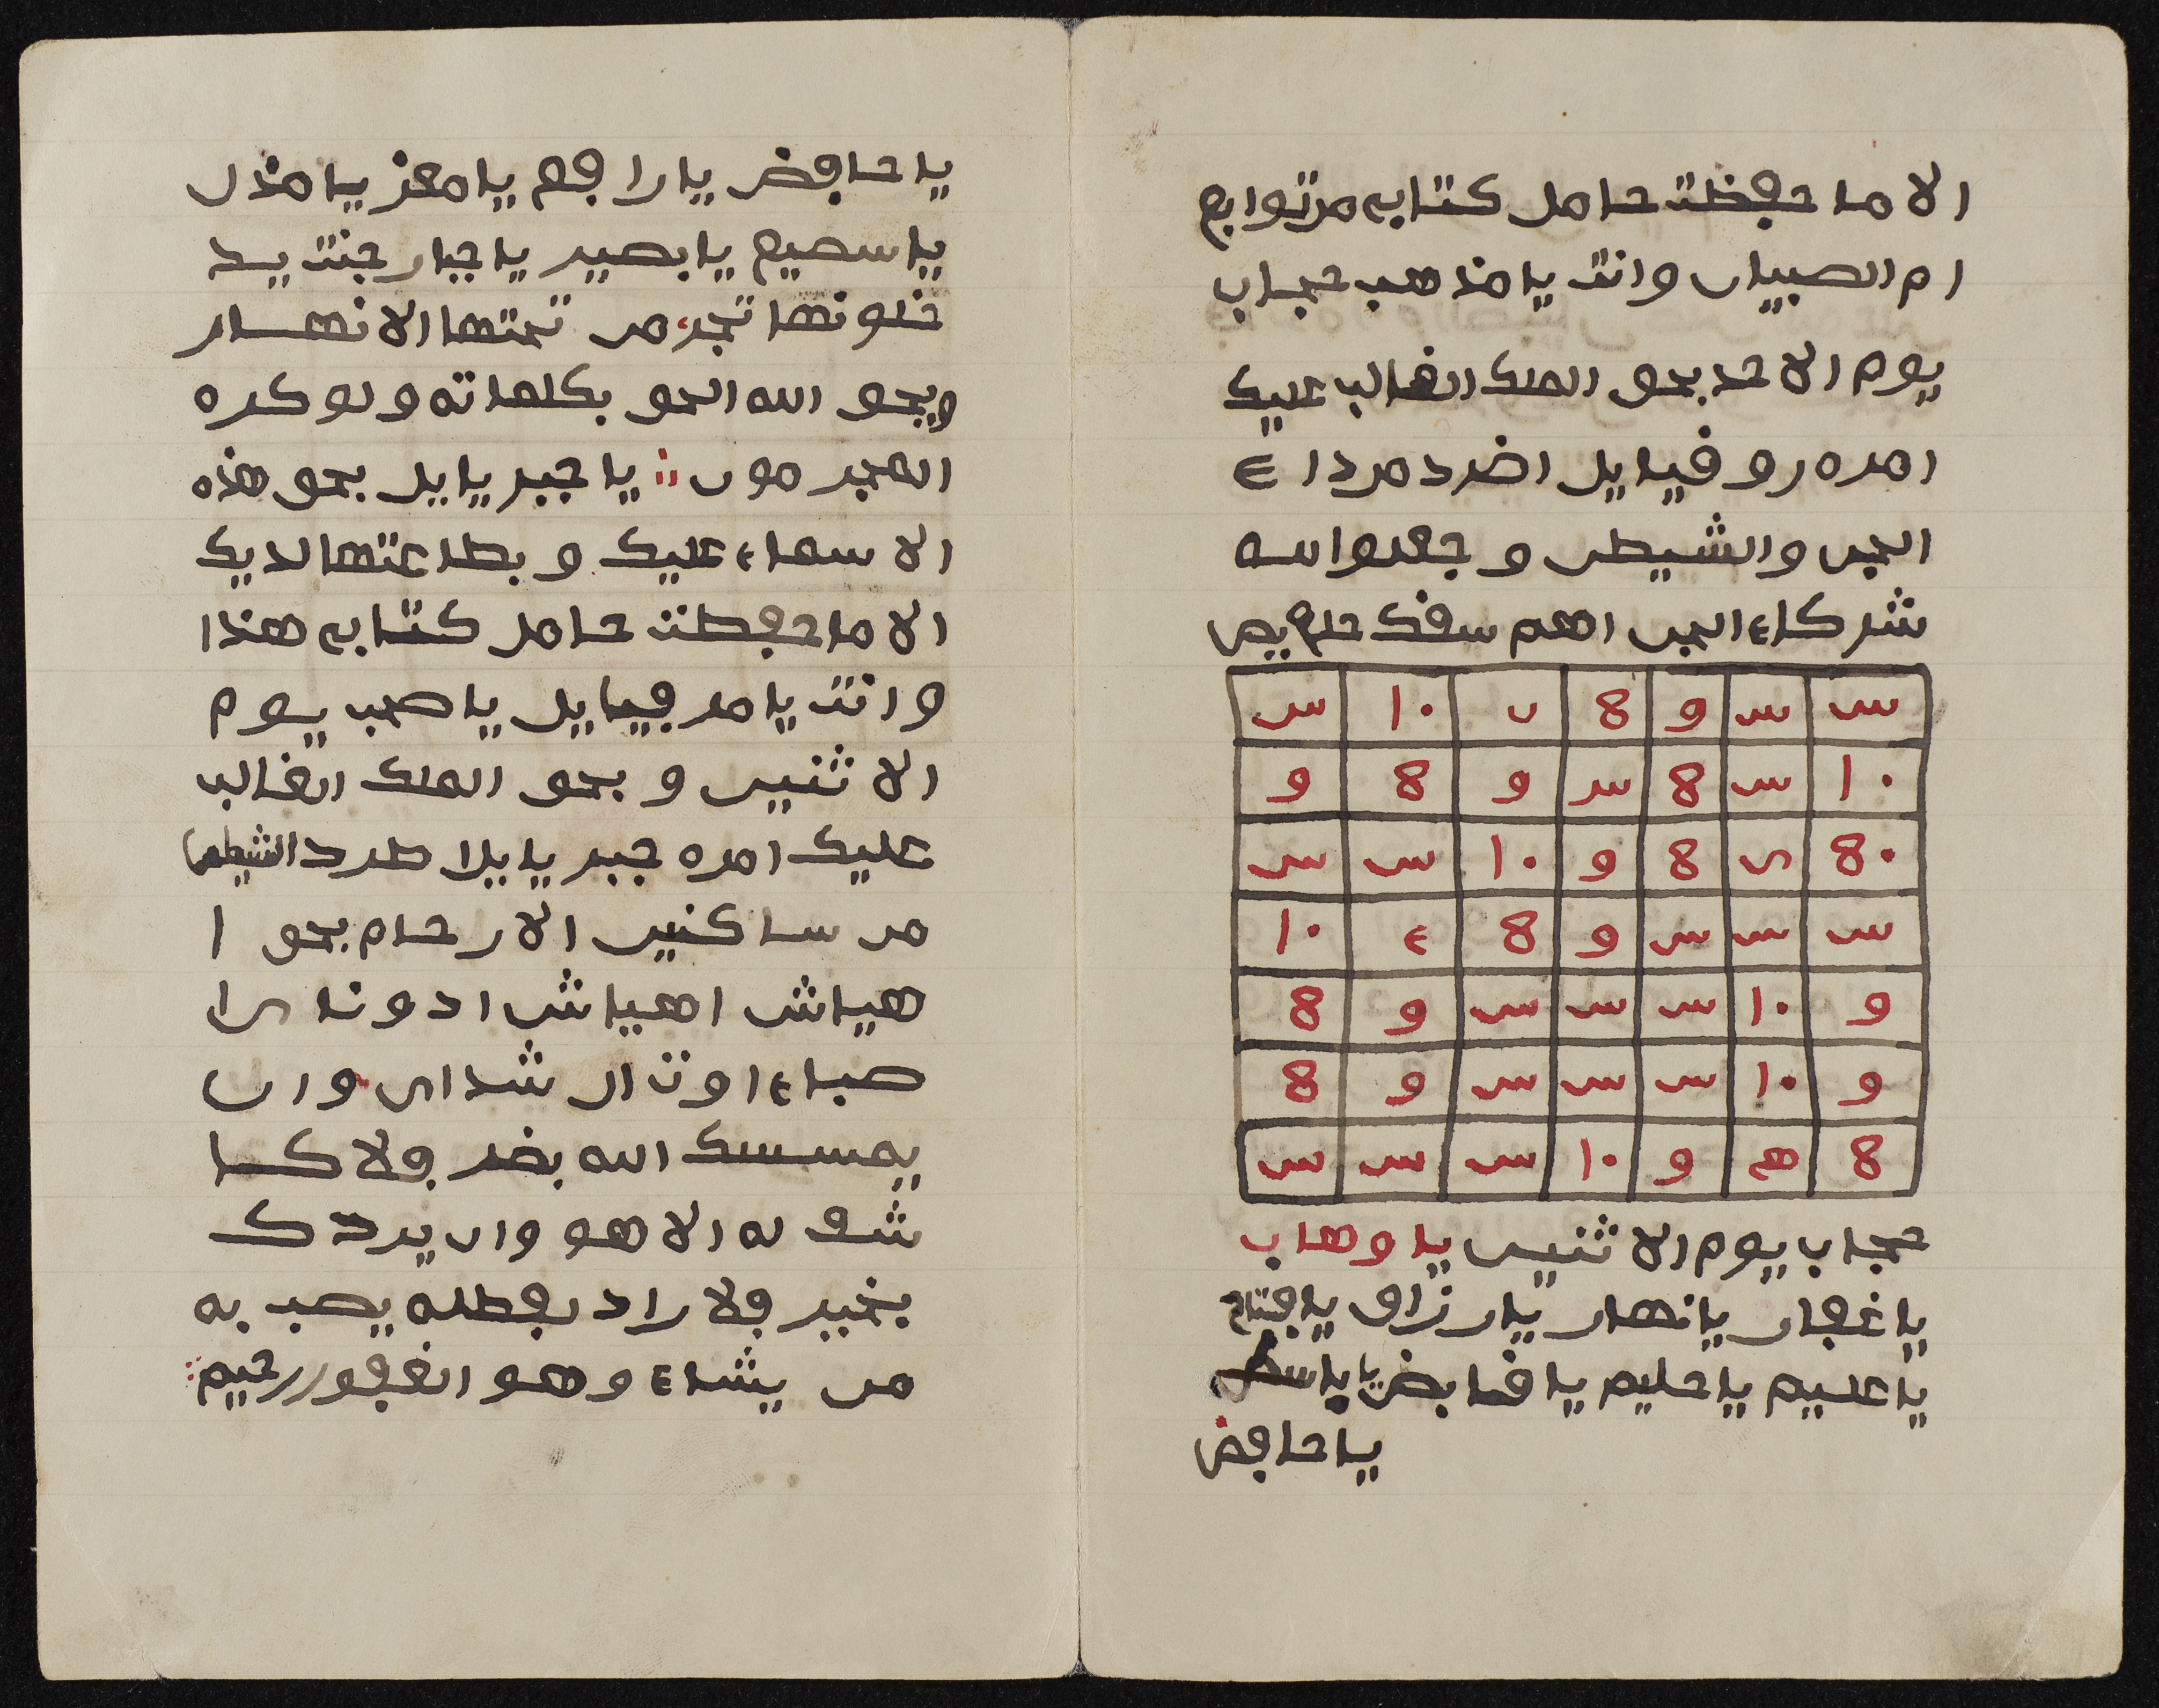 الا ما حفظت حامل كتابي من توابع
ام الصبيان وانت يا مذهب حجاب
يوم الاحد بحق الملك الغالب عليك
امره روفيايل اضرد مردا ء
الجن والشيطن وجعلوا لله
شركاء الجن اهم سقك حلع يص
س س و 8 ں ١٠ س
١٠ س 8 س و 8 و
8٠ ں 8 و ١٠ س س
س س س و 8 ء ١٠
و ١٠ س س س و 8
و ١٠ س س س و 8
8 ھ و ١٠ س س س
حجاب يوم الاثنين يا وهاب
يا غفار يا نهار يا رزاق يا فتاح
يا عليم يا حليم يا قابض يا باسط
يا خافض
يا خافض يا رافع يا معز يا مذل
يا سميع يا بصير يا جبار جنت يد
خلونها تجرى من تحتها الانهار
ويحق الله الحق بكلماته ولو كره
المجرمون يا جبريايل بحق هذه
الاسماء عليك وبطاعتها لديك
الا ما حفظت حامل كتابي هذا
وانت يا مرفيايل يا صحب يوم
الاثنين وبحق الملك الغالب
عليك امره جبريايل اطرد الشيطن
من ساكنين الارحام بحق ا
هياش اهياش ادوناى ا
صباء اوت ال شداى وان
يمسسك الله بضر فلا كا
شف له الا هو وان يردك
بخير فلا راد لفضله يصب به
من يشاء وهو الغفور رحيم